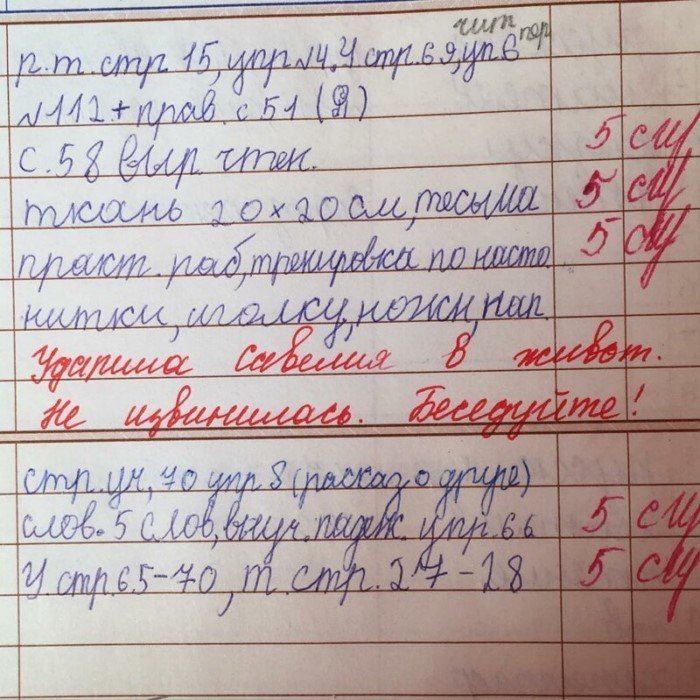 чит пер
р.т. стр 15, упр №4. У стр. 69, уп. 6
№112 + прав. с 51 (Я)
с. 58 выр. чтен. 5
ткань 20×20 см, тесьма 5
практ. раб, тренировка по насто 5
нитки, иголку, ножн, нап.
Ударила Савелия в живот.
Не извинилась. Беседуйте!
стр. уч, 70 упр 8 (расказ о друге)
слов. 5 слов, выуч. падеж. упр. 66 5
У. стр. 65-70, т. стр. 27-28 5